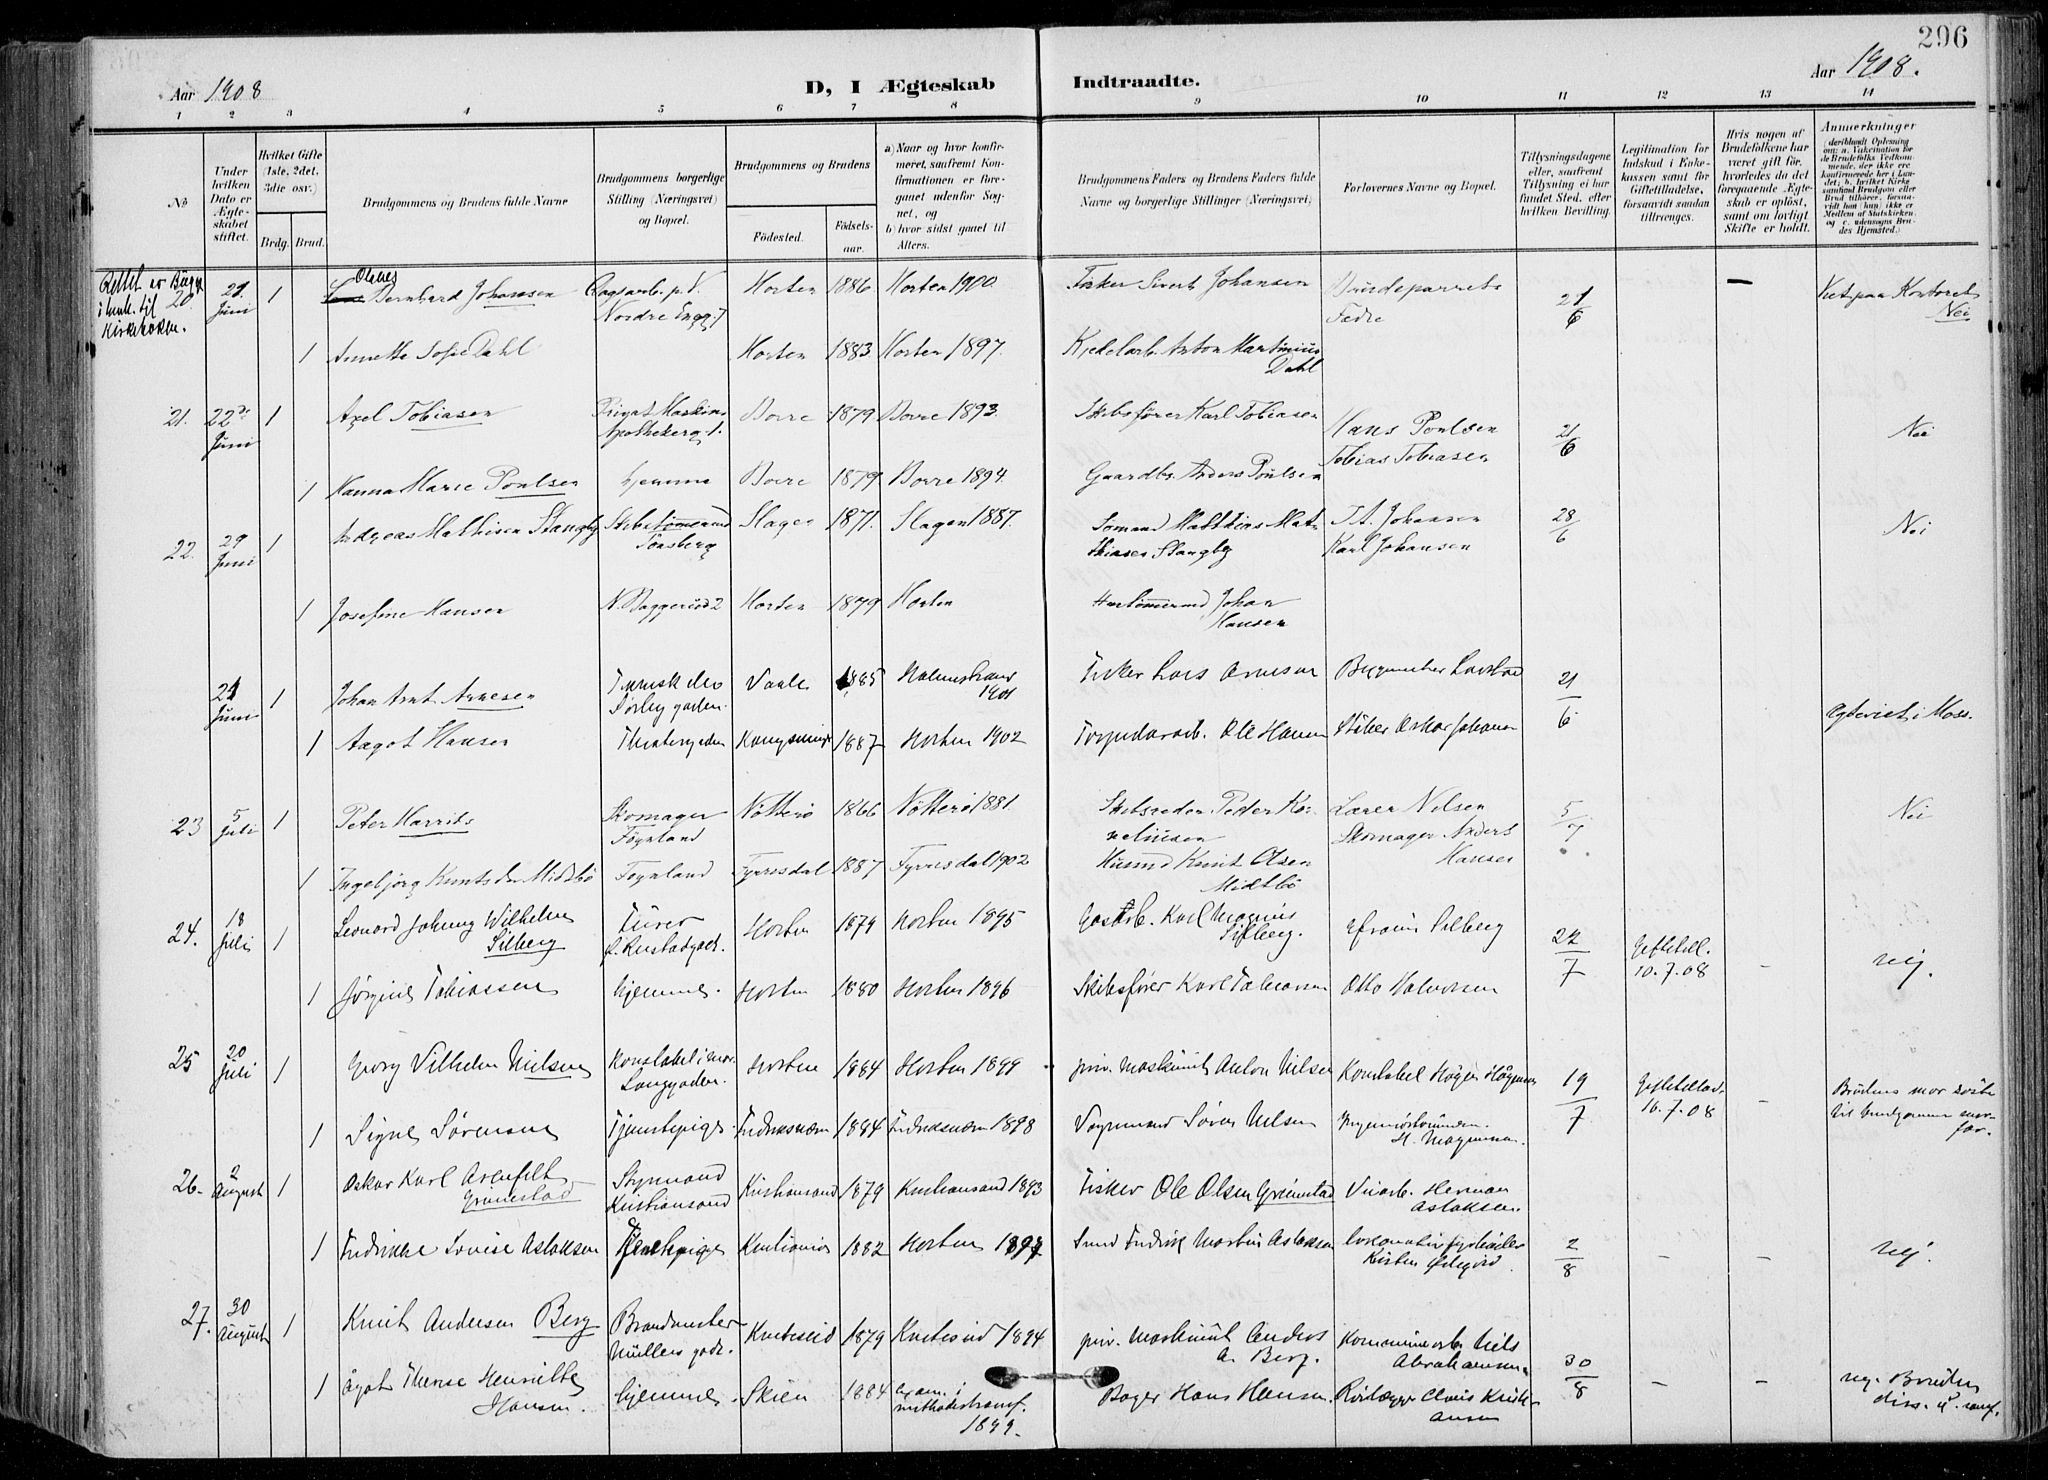 296
Aar 1908
D, I Ægteskab
Indtraadte.
Aar 1908.
1 2 3 4 5 6 7 8 9 10 11 12 13 14
No
Under hvilken Dato er Ægteskabet stiftet.
Hvilket Gifte (1ste, 2det, 3die osv.)
Brdg. Brud.
Brudgommens og Brudens fulde Navne
Brudgommens borgerlige Stilling (Næringsvei) og Bopæl.
Brudgommens og Brudens
Fødested. Fødselsaar.
a) Naar og hvor konfirmeret, saafremt Konfirmationen er foregaaet udenfor Sognet, og
b) hvor sidst gaaet til Alters.
Brudgommens Faders og Brudens Faders fulde Navne og borgerlige Stillinger (Næringsvei)
Forlovernes Navne og Bopæl.
Tillysningsdagene eller, saafremt Tillysning ei har fundet Sted, efter hvilken Bevilling.
Legitimation for Indskud i Enkekassen samt for Giftetilladelse, forsaavidt saadan tiltrænges.
Hvis nogen af Brudefolkene har været gift før, hvorledes da det foregaaende Ægteskab er opløst, samt om lovligt Skifte er holdt.
Anmerkninger
(deriblandt Oplysning om: a. Vakcination for de Brudefolks Vedkommende, der ikke ere konfirmerede her i Landet; b. hvilket Kirkesamfund Brudgom eller Brud tilhører, forsaavidt han (hun) ikke er Medlem af Statskirken, og c. udensogns Brudes Hjemsted.)
Rettet er Bilag
i henh. til
Kirkeboken.
20 21 Juni 1 Olaves Bernhard Johansen Dagarb. p. V. Horten 1886 Horten 1900. Fisker Sivert Johansen Brudeparrets 21/6 — Viet paa Kontoret
Nordre Engg. 7 Fædre Nei
1 Annette Sofie Dahl Horten 1883 Horten 1897. Kjedelarb. Anton Martinius
Dahl
21. 22de Juni 1 Axel Tobiasen Privat Maskinist Borre 1879 Borre 1893. Skibsfører Karl Tobiasen Hans Poulsen 21/6 Nei
Apothekerg. 1. Tobias Tobiasen
1 Hanna Marie Poulsen hjemme Borre 1879 Borre 1894. Gaardbr. Anders Poulsen
22. 29 Juni 1 Andreas Mathisen Stangeby Skibstømmermand Slagen 1871. Slagen 1887. Sømand Matthias Mat- T. A. Johansen 28/6 Nei
Tønsberg thiasen Stangeby Karl Johansen
1 Josefine Hansen N. Baggerud 2 Horten 1879 Horten Hustømmermd Johan
Hansen
21 Juni 1 Johan Arnt Arnesen Vaale 1885 Holmestrand Fisker Lars Arnesen 21/6
1901
1 Aagot Hansen Theatergaden 1887 Horten 1902 Torpedoarb. Ole Hansen Støber Oskar Johansen Ægteviet i Moss.
23 5 Juli 1 Peter Harrits Skomager Nøtterø 1866 Nøtterø 1881. Skibsreder Peder Kor- Lærer Nilsen 5/7 Nei
Føynland neliusen Skomager Anders
Hansen
1 Ingebjørg Knutsdtr Midtbø Føynland Fyrresdal 1887 Fyrresdal 1902 Husmd Knut Olsen
Midtbø
24. 18 Juli 1 Leonard Johnny Wilhelm Turer Horten 1879 Horten 1895 Gastarb. Karl Magnus Efraim Silberg 22/7 Giftetill. – nej.
Silberg Silfberg. 10.7.08
1 Jørgine Tobiassen hjemme. Horten 1880 Horten 1896 Skibsfører Karl Tobiassen Otto Halvorsen
25 20 Juli 1 Georg Vilhelm Nilsen Konstabel i mar. Horten 1884 Horten 1899 priv. maskinist Anton Nilsen Konstabel Høgen Høgensen 19/7 Giftetillad. – Brudens mor søster
Langgaden. 16.7.08 til brudgommens mor-
1 Signe Sørensen Tjenestepige Fredriksværn 1884 Fredriksværn 1898 Vognmand Søren Nilsen far.
26. 2 August 1 Oskar Karl Arenfeldt Styrmand Kristiansand 1879 Kristiansand 1893 Fisker Ole Olsen Grimestad Herman
Grimestad Kristiansand Aslaksen.
1 Fredrikke Lovise Aslaksen Tjenestepige Kristiania 1882 Horten 1897 Smed Fredrik Martin Aslaksen 2/8 – – nej.
27. 30 August 1 Knut Andersen Berg Brandmester Kviteseid 1879 Kviteseid 1894 priv. maskinist Anders Kommunearb. Niels 30/8 – –
Müllers gade. A. Berg. Abrahamsen.
1 Ågot Therese Henriette hjemme. Skien 1884 exam. i Bager Hans Hansen. Rørlægger Claus Kristi- nej. Bruden
Hansen. methodistsamf. ansen diss. u. samf.
1899.